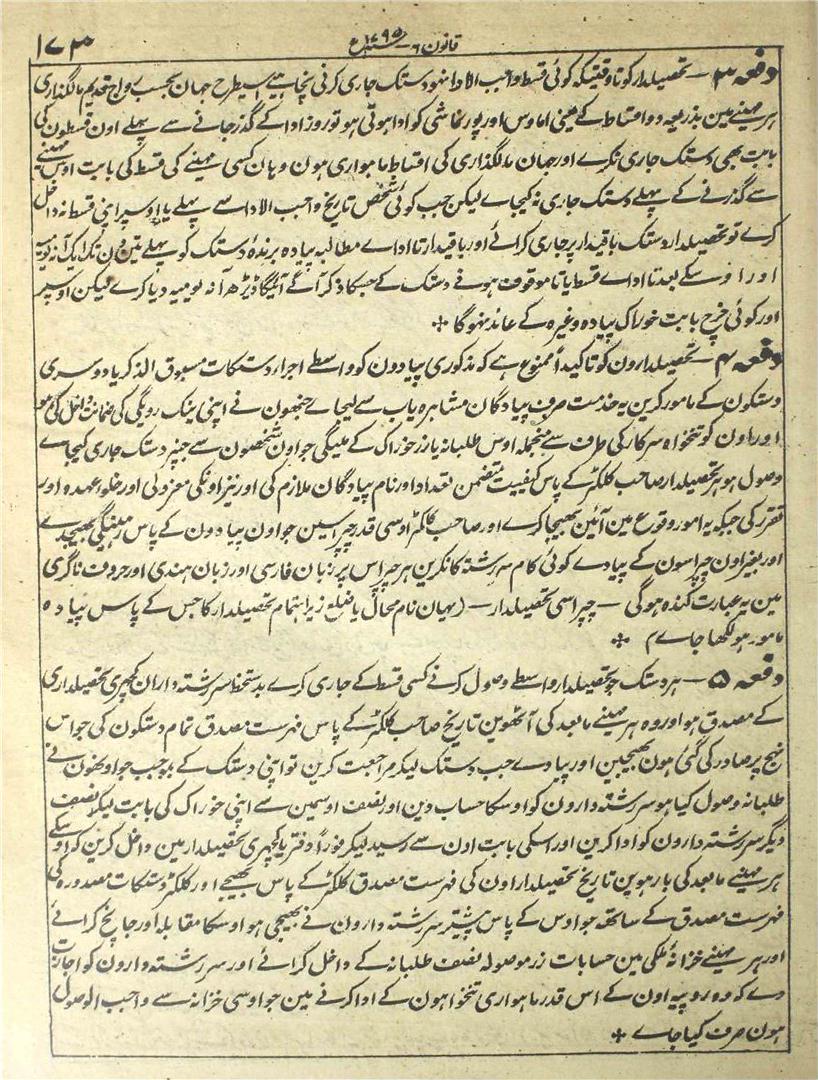 قانون ۶ ۱۷۹۵ع
۱۷۳
دفعہ ۳ — تحصیلدار کو تاوقتیکہ کوئی قسط واجب الادا نہو دستک جاری کرنی نچاہیے اسیطرح جہان بحسب رواج قدیم مالگذاری
ہر مہینے مین بذریعہ دو اقساط کے یعنی اماوس اور پورنماشی کو ادا ہوتی ہو تو روز ادا کے گذر جانے سے پہلے اون قسطون کی
بابت بھی دستک جاری نکرے اور جہان مالگذاری کی اقساط ماہواری ہون وہان کسی مہینے کی قسط کی بابت اوس مہینے
سے گذرنے کے پہلے دستک جاری نہ کیجاے لیکن جب کوئی شخص تاریخ واجب الادا سے پہلے یا اوسپر اپنی قسط نہ داخل
کرے تو تحصیلدار دستک باقیدار پر جاری کرائے اور باقیدار تا اداے مطالبہ پیادہ برندہ دستک کو پہلے تین دن تک ایک آنہ یومیہ
اور اوسکے بعد تا اداے قسط یا تا موقوف ہونے دستک کے جسکا ذکر آگے آئیگا ڈیڑھ آنہ یومیہ دیا کرے لیکن اوسپر
اور کوئی خرچ بابت خوراک پیادہ وغیرہ کے عائد نہوگا ❊
دفعہ ۴ — تحصیلدارون کو تاکیداً ممنوع ہے کہ مذکوری پیادون کو واسطے اجراء دستکات مسبوق الذکر یا دوسری
دستکون کے مامور کرین یہ خدمت صرف پیادگان مشاہرہ یاب سے لیجاے جنھون نے اپنی نیک رویگی کی ضمانت داخل کی ہو
اور اون کو تنخواہ سرکار کی طرف سے منجملہ اوس طلبانہ یا زر خوراک کے ملیگی جو اون شخصون سے جنپر دستک جاری کیجاے
وصول ہو ہر تحصیلدار صاحب کلکٹر کے پاس کیفیت متضمن تعداد اور نام پیادگان ملازم کی اور نیز اونکی معزولی اور خلو عہدہ اور
تقرر کی جبکہ یہ امور وقوع مین آئین بھیجا کرے اور صاحب کلکٹر اوسی قدر چپراسین جو اون پیادون کے پاس رہینگی بھیجدے
اور بغیر اون چپراسون کے پیادے کوئی کام سررشتہ کا نکرین ہر چپراس پر زبان فارسی اور زبان ہندی اور حروف ناگری
مین یہ عبارت کندہ ہوگی — چپراسی تحصیلدار — (یہان نام محال یا ضلع زیر اہتمام تحصیلدار کا جس کے پاس پیادہ
مامور ہو لکھا جاے) ❊
دفعہ ۵ — ہر دستک جو تحصیلدار واسطے وصول کرنے کسی قسط کے جاری کرے بدستخط سررشتہ داران کچہری تحصیلداری
کے مصدق ہو اور وہ ہر مہینے مابعد کی آٹھوین تاریخ صاحب کلکٹر کے پاس فہرست مصدق تمام دستکون کی جو اس
نہج پر صادر کی گئی ہون بھیجین اور پیادے جب دستک لیکر مراجعت کرین تو اپنی دستک کے بموجب جو اونھون نے
طلبانہ وصول کیا ہو سررشتہ دارون کو اوسکا حساب دین اور نصف اوسمین سے اپنی خوراک کی بابت لیکر نصف
دیگر سررشتہ دارون کو ادا کرین اور اسکی بابت اون سے رسید لیکر فوراً دفتر یا کچہری تحصیلدار مین داخل کرین کہ اوسکے
ہر مہینے مابعد کی بارہوین تاریخ تحصیلدار اون کی فہرست مصدق کلکٹر کے پاس بھیجے اور کلکٹر دستکات مصدورہ کی
فہرست مصدق کے ساتھ جو اوس کے پاس پیشتر سررشتہ دارون نے بھیجی ہو اوسکا مقابلہ اور جانچ کرائے
اور ہر مہینے خزانہ ملکی مین حسابات زر موصولہ نصف طلبانہ کے داخل کرائے اور سررشتہ دارون کو اجازت
دے کہ وہ روپیہ اون کے اس قدر ماہواری تنخواہون کے ادا کرنے مین جو اوسی خزانہ سے واجب الوصول
ہون صرف کیا جاے ❊